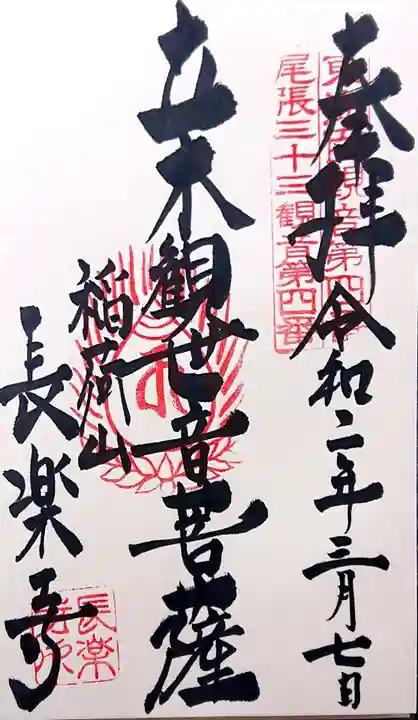 奉拝 令和二年三月七日
尾張三十三観音第四番
立木観世音菩薩
稲荷山
長楽寺
長楽